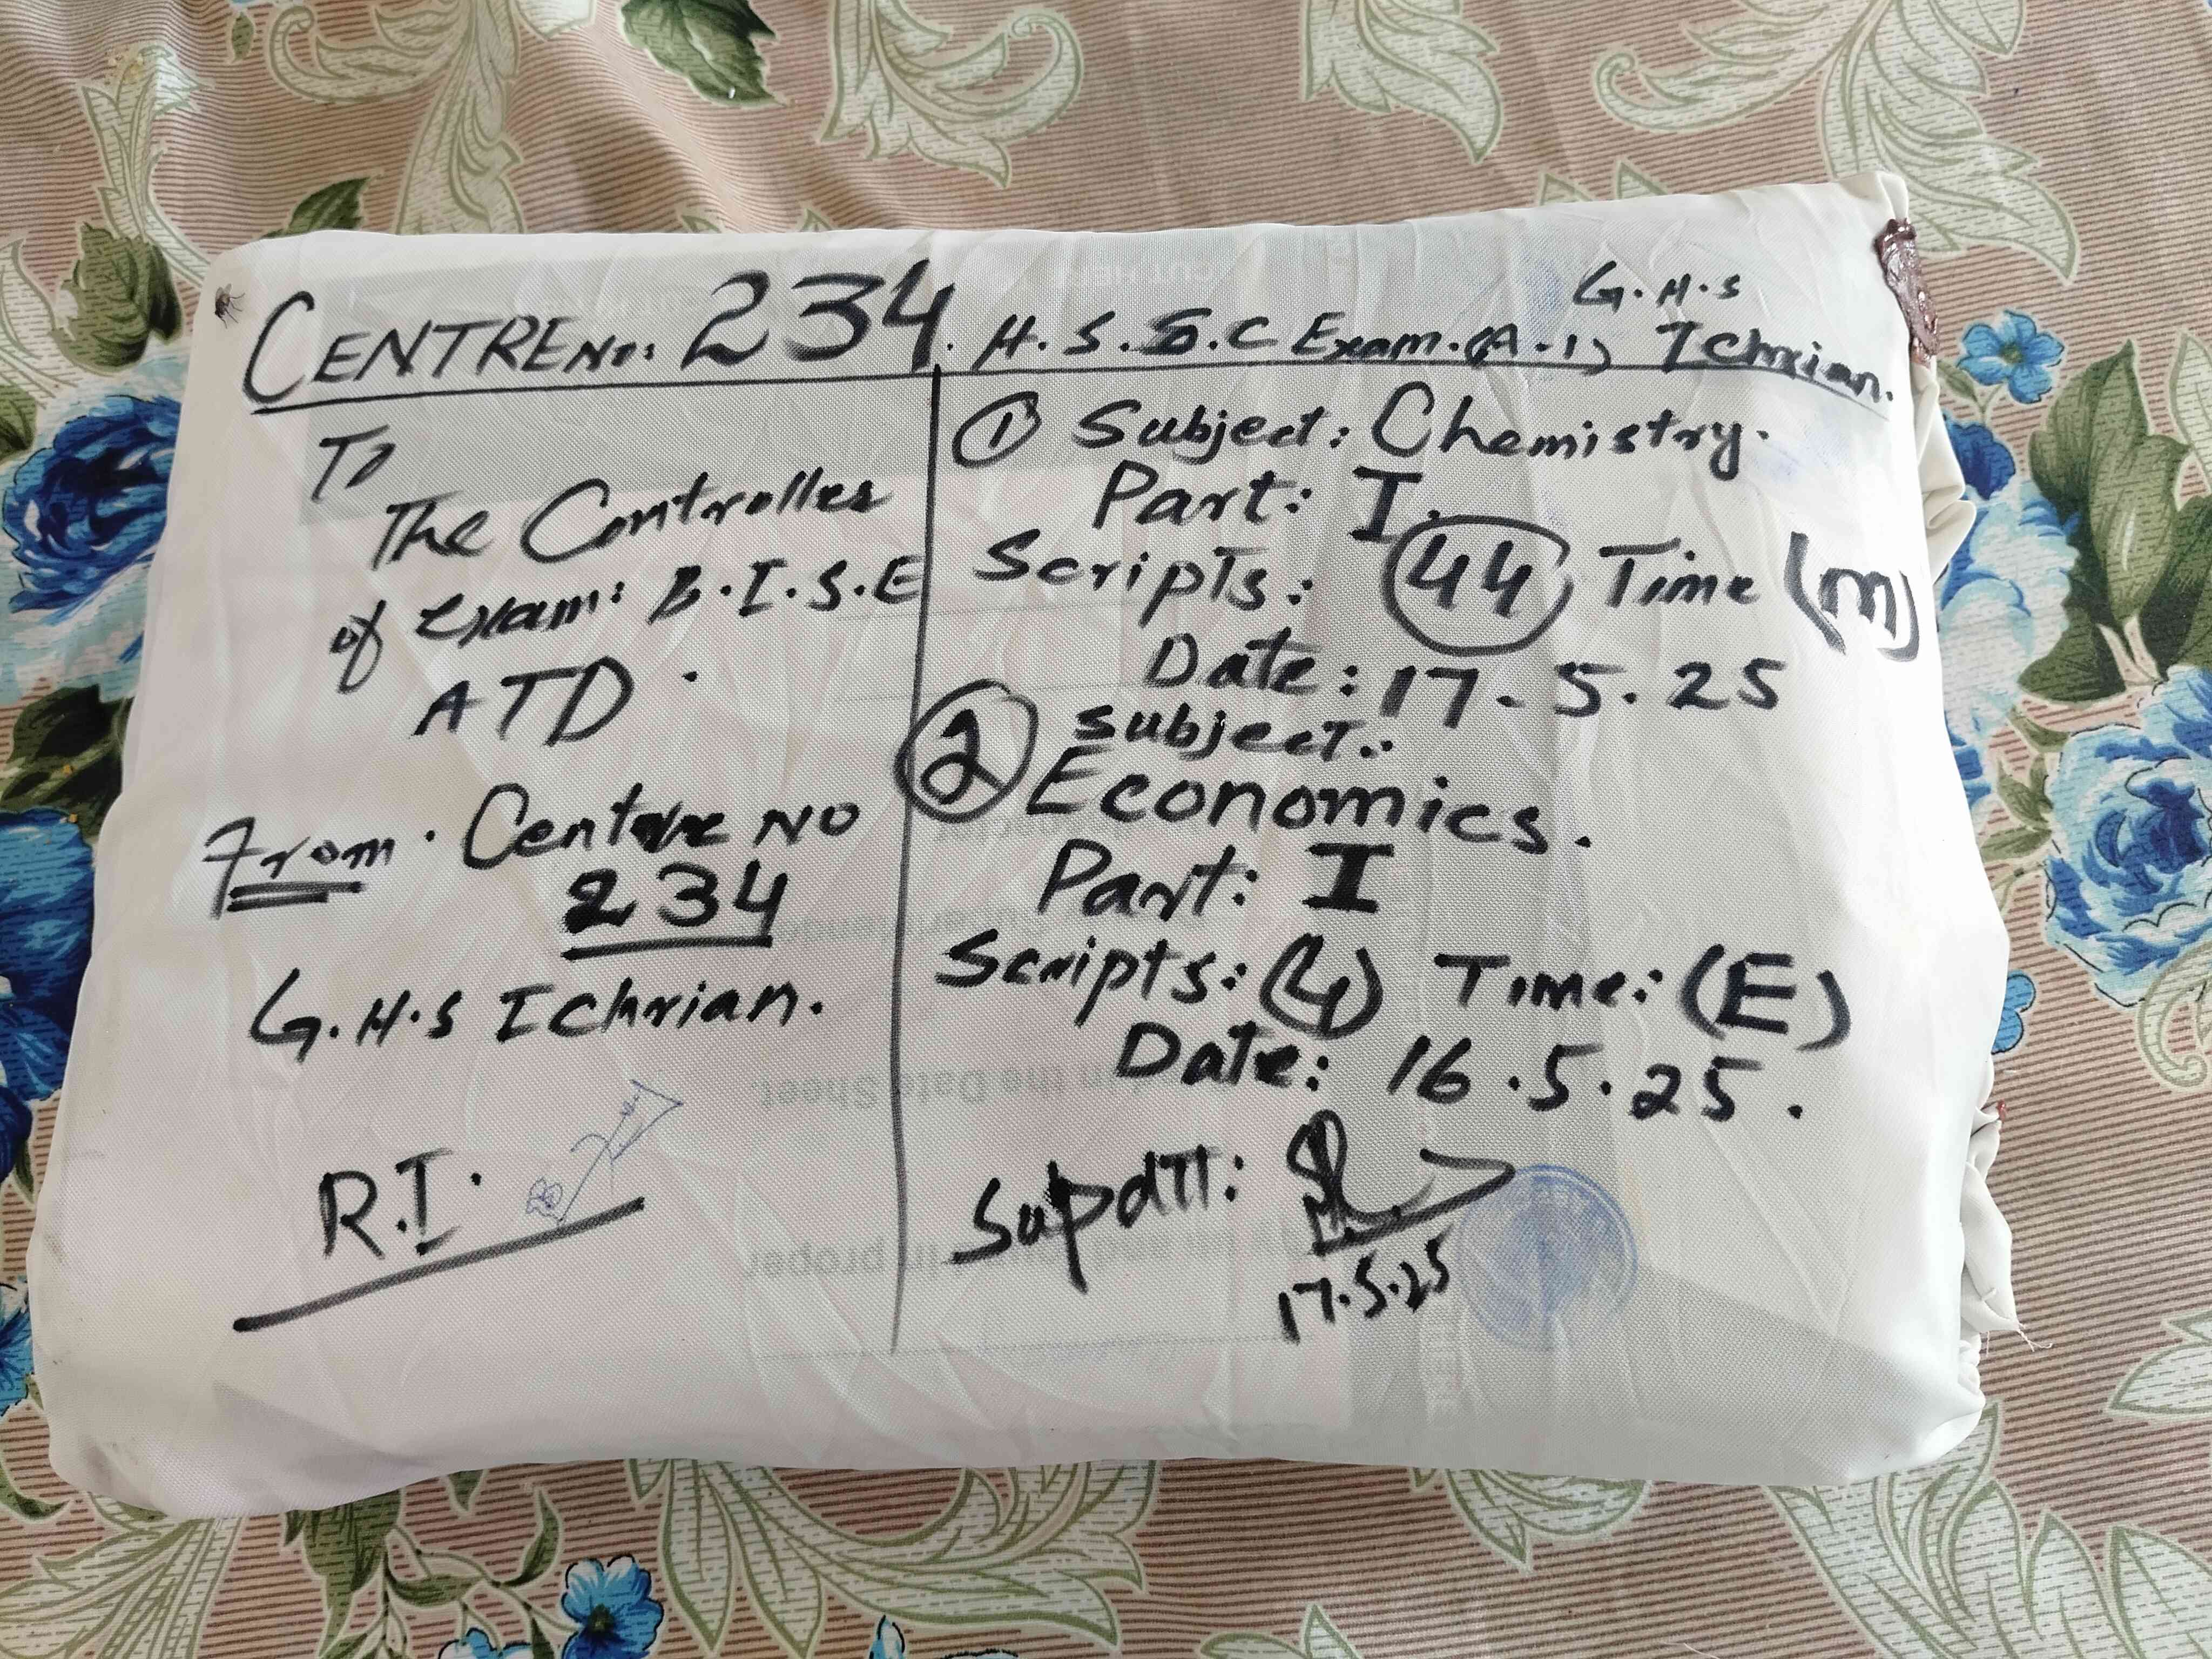 CENTRE No: 234. H.S.S.C Exam.(A-1) G.H.S Ichrian.
To
The Controller
of Exam: B.I.S.E
ATD.
From. Centre NO
234
G.H.S Ichrian.
R.I.
① Subject: Chemistry.
Part: I.
Scripts: 44 Time (M)
Date: 17-5.25
② Subject:
Economics.
Part: I
Scripts: (4) Time: (E)
Date: 16.5.25.
Supdtt:
17.5.25